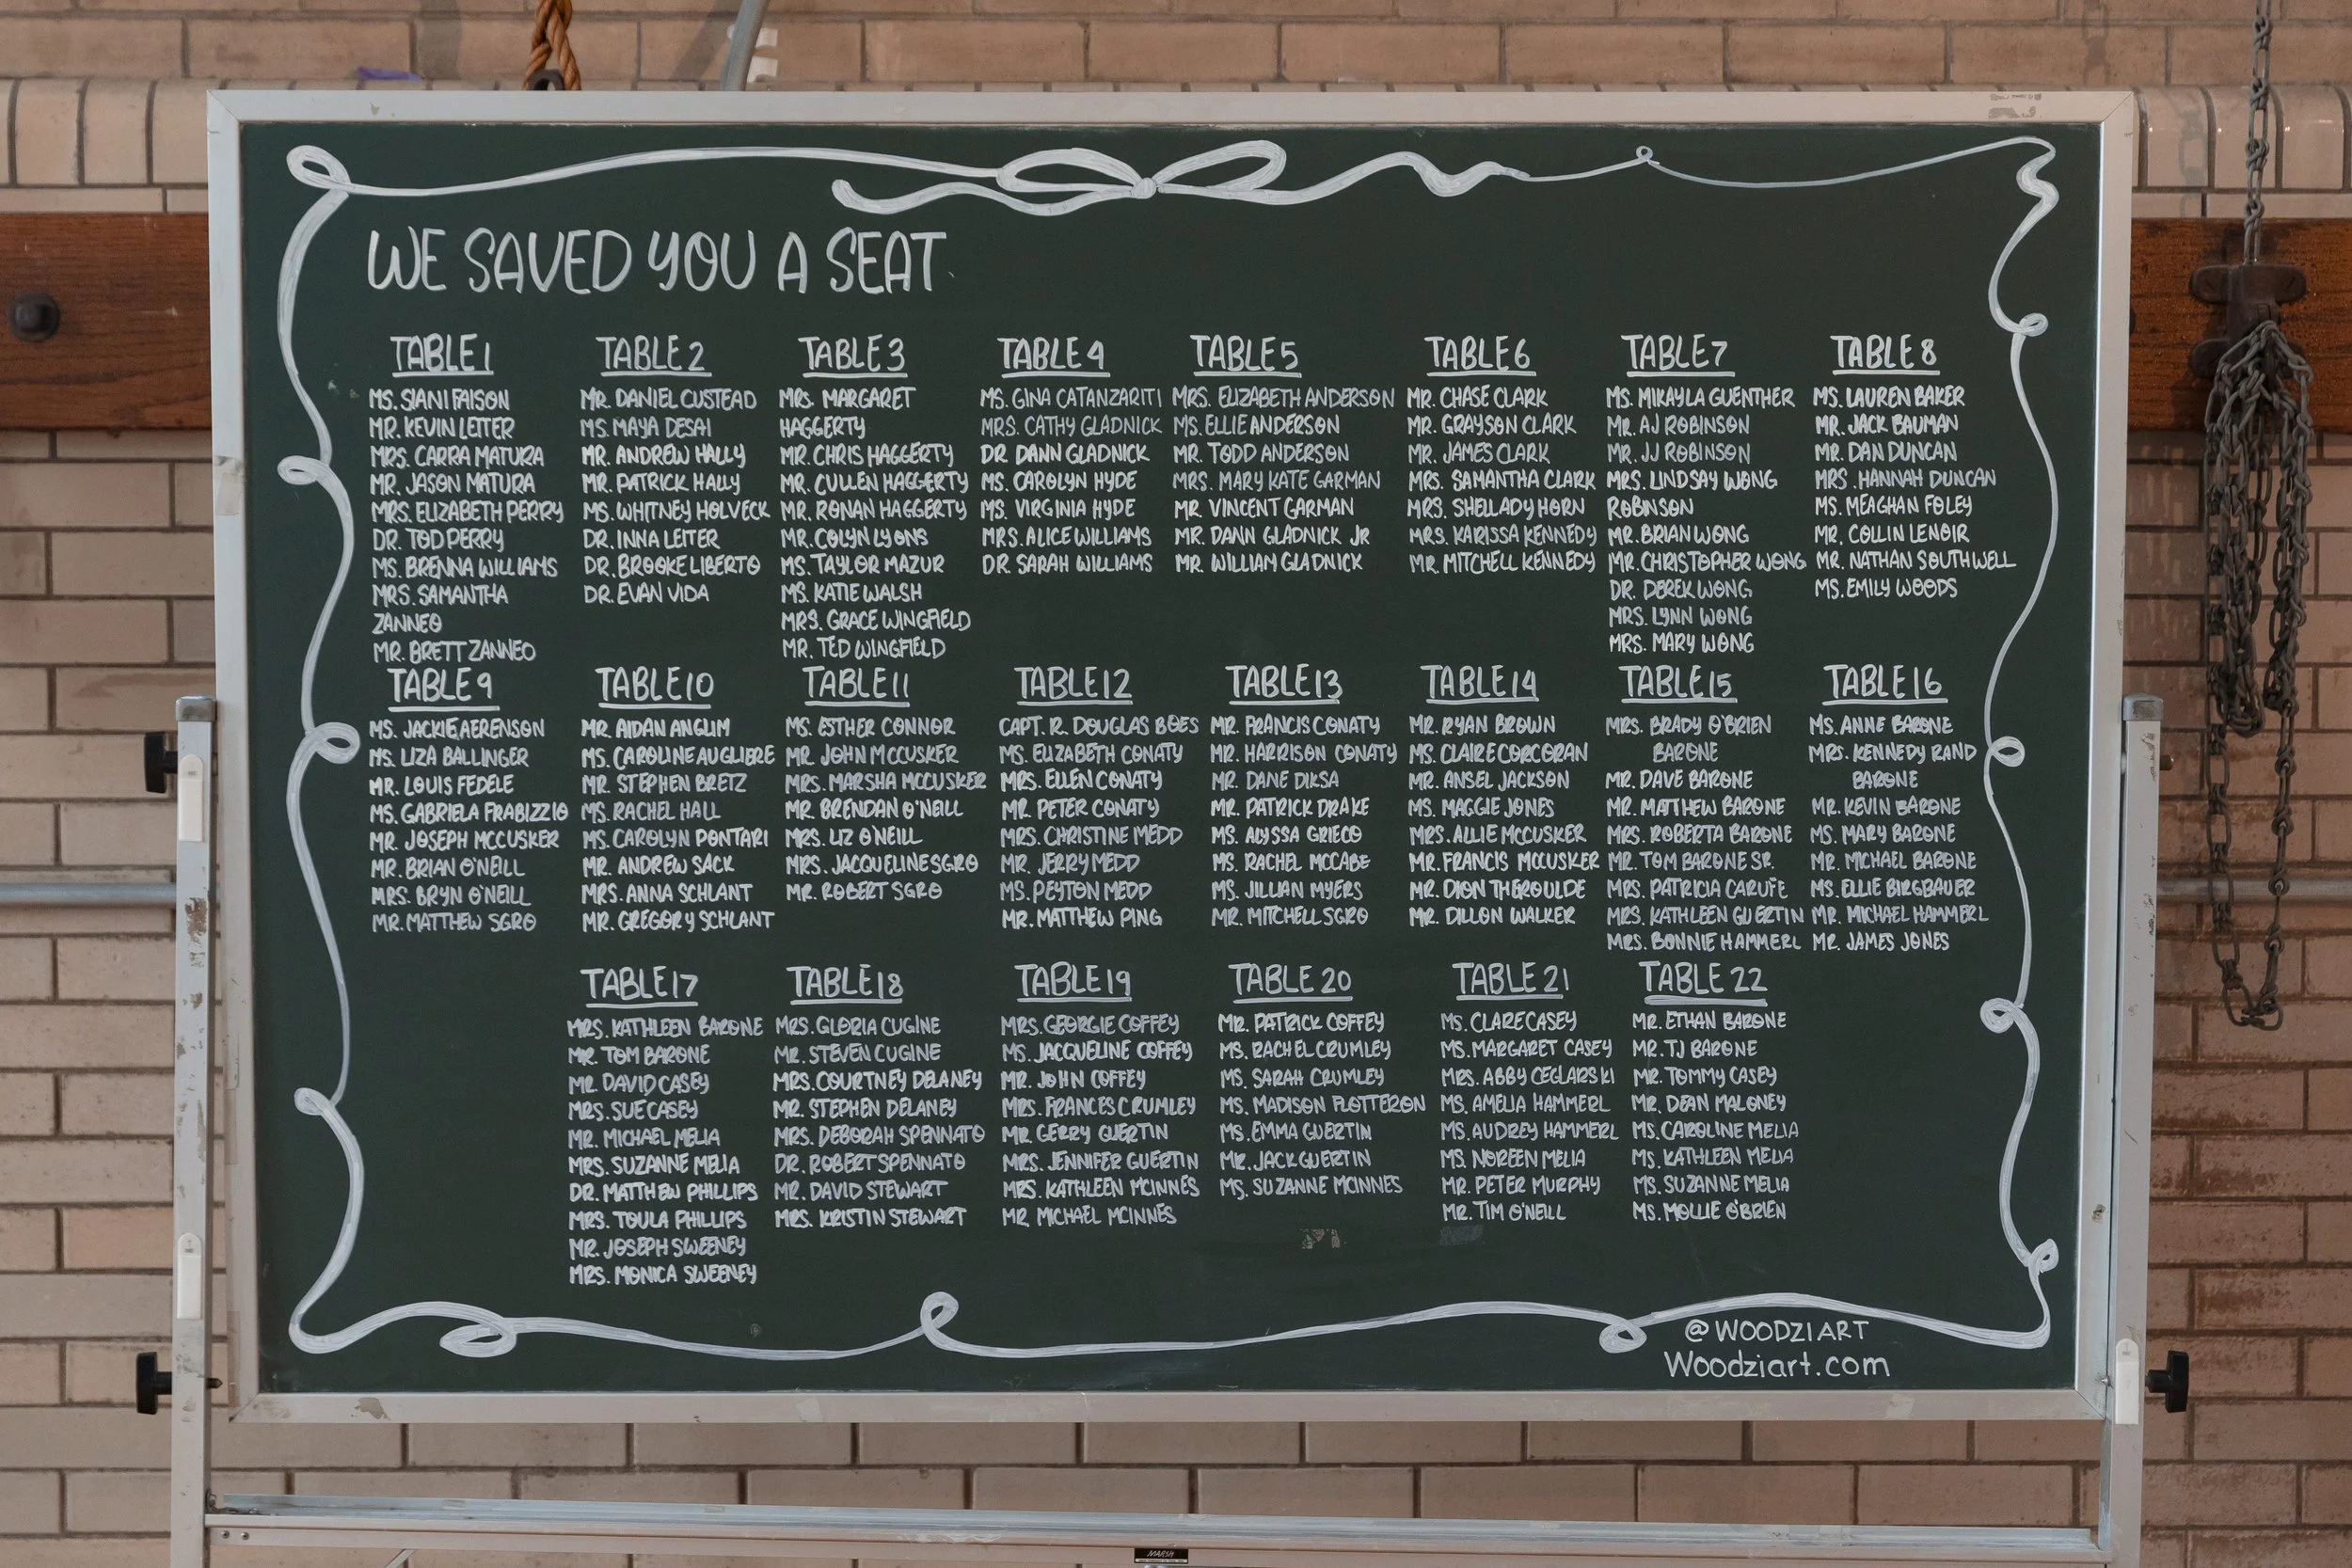 WE SAVED YOU A SEAT
TABLE 1
MS. SIANI FAISON
MR. KEVIN LEITER
MRS. CARRA MATURA
MR. JASON MATURA
MRS. ELIZABETH PERRY
DR. TOD PERRY
MS. BRENNA WILLIAMS
MRS. SAMANTHA
ZANNEO
MR. BRETT ZANNEO
TABLE 2
MR. DANIEL CUSTEAD
MS. MAYA DESAI
MR. ANDREW HALLY
MR. PATRICK HALLY
MS. WHITNEY HOLVECK
DR. INNA LEITER
DR. BROOKE LIBERTO
DR. EVAN VIDA
TABLE 3
MRS. MARGARET
HAGGERTY
MR. CHRIS HAGGERTY
MR. CULLEN HAGGERTY
MR. RONAN HAGGERTY
MR. COLYN LYONS
MS. TAYLOR MAZUR
MS. KATIE WALSH
MRS. GRACE WINGFIELD
MR. TED WINGFIELD
TABLE 4
MS. GINA CATANZARITI
MRS. CATHY GLADNICK
DR. DANN GLADNICK
MS. CAROLYN HYDE
MS. VIRGINIA HYDE
MRS. ALICE WILLIAMS
DR. SARAH WILLIAMS
TABLE 5
MRS. ELIZABETH ANDERSON
MS. ELLIE ANDERSON
MR. TODD ANDERSON
MRS. MARY KATE GARMAN
MR. VINCENT GARMAN
MR. DANN GLADNICK JR
MR. WILLIAN GLADNICK
TABLE 6
MR. CHASE CLARK
MR. GRAYSON CLARK
MR. JAMES CLARK
MRS. SAMANTHA CLARK
MRS. SHELLADY HORN
MRS. KARISSA KENNEDY
MR. MITCHELL KENNEDY
TABLE 7
MS. MIKAYLA GUENTHER
MR. AJ ROBINSON
MR. JJ ROBINSON
MRS. LINDSAY WONG
ROBINSON
MR. BRIAN WONG
MR. CHRISTOPHER WONG
DR. DEREK WONG
MRS. LYNN WONG
MRS. MARY WONG
TABLE 8
MS. LAUREN BAKER
MR. JACK BAUMAN
MR. DAN DUNCAN
MRS. HANNAH DUNCAN
MS. MEAGHAN FOLEY
MR. COLLIN LENOIR
MR. NATHAN SOUTHWELL
MS. EMILY WOODS
TABLE 9
MS. JACKIE AERENSON
MS. LIZA BALLINGER
MR. LOUIS FEDELE
MS. GABRIELA FRABIZZIO
MR. JOSEPH MCCUSKER
MR. BRIAN O'NEILL
MRS. BRYN O'NEILL
MR. MATTHEW SGRO
TABLE 10
MR. AIDAN ANGLIM
MS. CAROLINE AUGLIERE
MR. STEPHEN BRETZ
MS. RACHEL HALL
MS. CAROLYN PONTARI
MR. ANDREW SACK
MRS. ANNA SCHLANT
MR. GREGORY SCHLANT
TABLE 11
MS. ESTHER CONNOR
MR. JOHN MCCUSKER
MRS. MARSHA MCCUSKER
MR. BRENDAN O'NEILL
MRS. LIZ O'NEILL
MRS. JACQUELINE SGRO
MR. ROBERT SGRO
TABLE 12
CAPT. R. DOUGLAS BOES
MS. ELIZABETH CONATY
MRS. ELLEN CONATY
MR. PETER CONATY
MRS. CHRISTINE MEDD
MR. JERRY MEDD
MS. PEYTON MEDD
MR. MATTHEW PING
TABLE 13
MR. FRANCIS CONATY
MR. HARRISON CONATY
MR. DANE DIKSA
MR. PATRICK DRAKE
MS. ALYSSA GRIECO
MS. RACHEL MCCABE
MS. JILLIAN MYERS
MR. MITCHELL SGRO
TABLE 14
MR. RYAN BROWN
MS. CLAIRE CORCORAN
MR. ANSEL JACKSON
MS. MAGGIE JONES
MRS. ALLIE MCCUSKER
MR. FRANCIS MCCUSKER
MR. DION THEROULDE
MR. DILLON WALKER
TABLE 15
MRS. BRADY O'BRIEN
BARONE
MR. DAVE BARONE
MR. MATTHEW BARONE
MRS. ROBERTA BARONE
MR. TOM BARONE SR.
MRS. PATRICIA CARUFE
MRS. KATHLEEN GUERTIN
MRS. BONNIE HAMMERL
TABLE 16
MS. ANNE BARONE
MRS. KENNEDY RAND
BARONE
MR. KEVIN BARONE
MS. MARY BARONE
MR. MICHAEL BARONE
MS. ELLIE BIRGBAUER
MR. MICHAEL HAMMERL
MR. JAMES JONES
TABLE 17
MRS. KATHLEEN BARONE
MR. TOM BARONE
MR. DAVID CASEY
MRS. SUE CASEY
MR. MICHAEL MELIA
MRS. SUZANNE MELIA
DR. MATTHEW PHILLIPS
MRS. TOULA PHILLIPS
MR. JOSEPH SWEENEY
MRS. MONICA SWEENEY
TABLE 18
MRS. GLORIA CUGINE
MR. STEVEN CUGINE
MRS. COURTNEY DELANEY
MR. STEPHEN DELANEY
MRS. DEBORAH SPENNATO
DR. ROBERT SPENNATO
MR. DAVID STEWART
MRS. KRISTIN STEWART
TABLE 19
MRS. GEORGIE COFFEY
MS. JACQUELINE COFFEY
MR. JOHN COFFEY
MRS. FRANCES CRUMLEY
MR. GERRY GUERTIN
MRS. JENNIFER GUERTIN
MRS. KATHLEEN MCINNES
MR. MICHAEL MCINNES
TABLE 20
MR. PATRICK COFFEY
MS. RACHEL CRUMLEY
MS. SARAH CRUMLEY
MS. MADISON FLOTTERON
MS. EMMA GUERTIN
MR. JACK GUERTIN
MS. SUZANNE MCINNES
TABLE 21
MS. CLARE CASEY
MS. MARGARET CASEY
MRS. ABBY CEGLARSKI
MS. AMELIA HAMMERL
MS. AUDREY HAMMERL
MS. NOREEN MELIA
MR. PETER MURPHY
MR. TIM O'NEILL
TABLE 22
MR. ETHAN BARONE
MR. TJ BARONE
MR. TOMMY CASEY
MR. DEAN MALONEY
MS. CAROLINE MELIA
MS. KATHLEEN MELIA
MS. SUZANNE MELIA
MS. MOLLIE O'BRIEN
@WOODZIART
Woodziart.com
MARSH